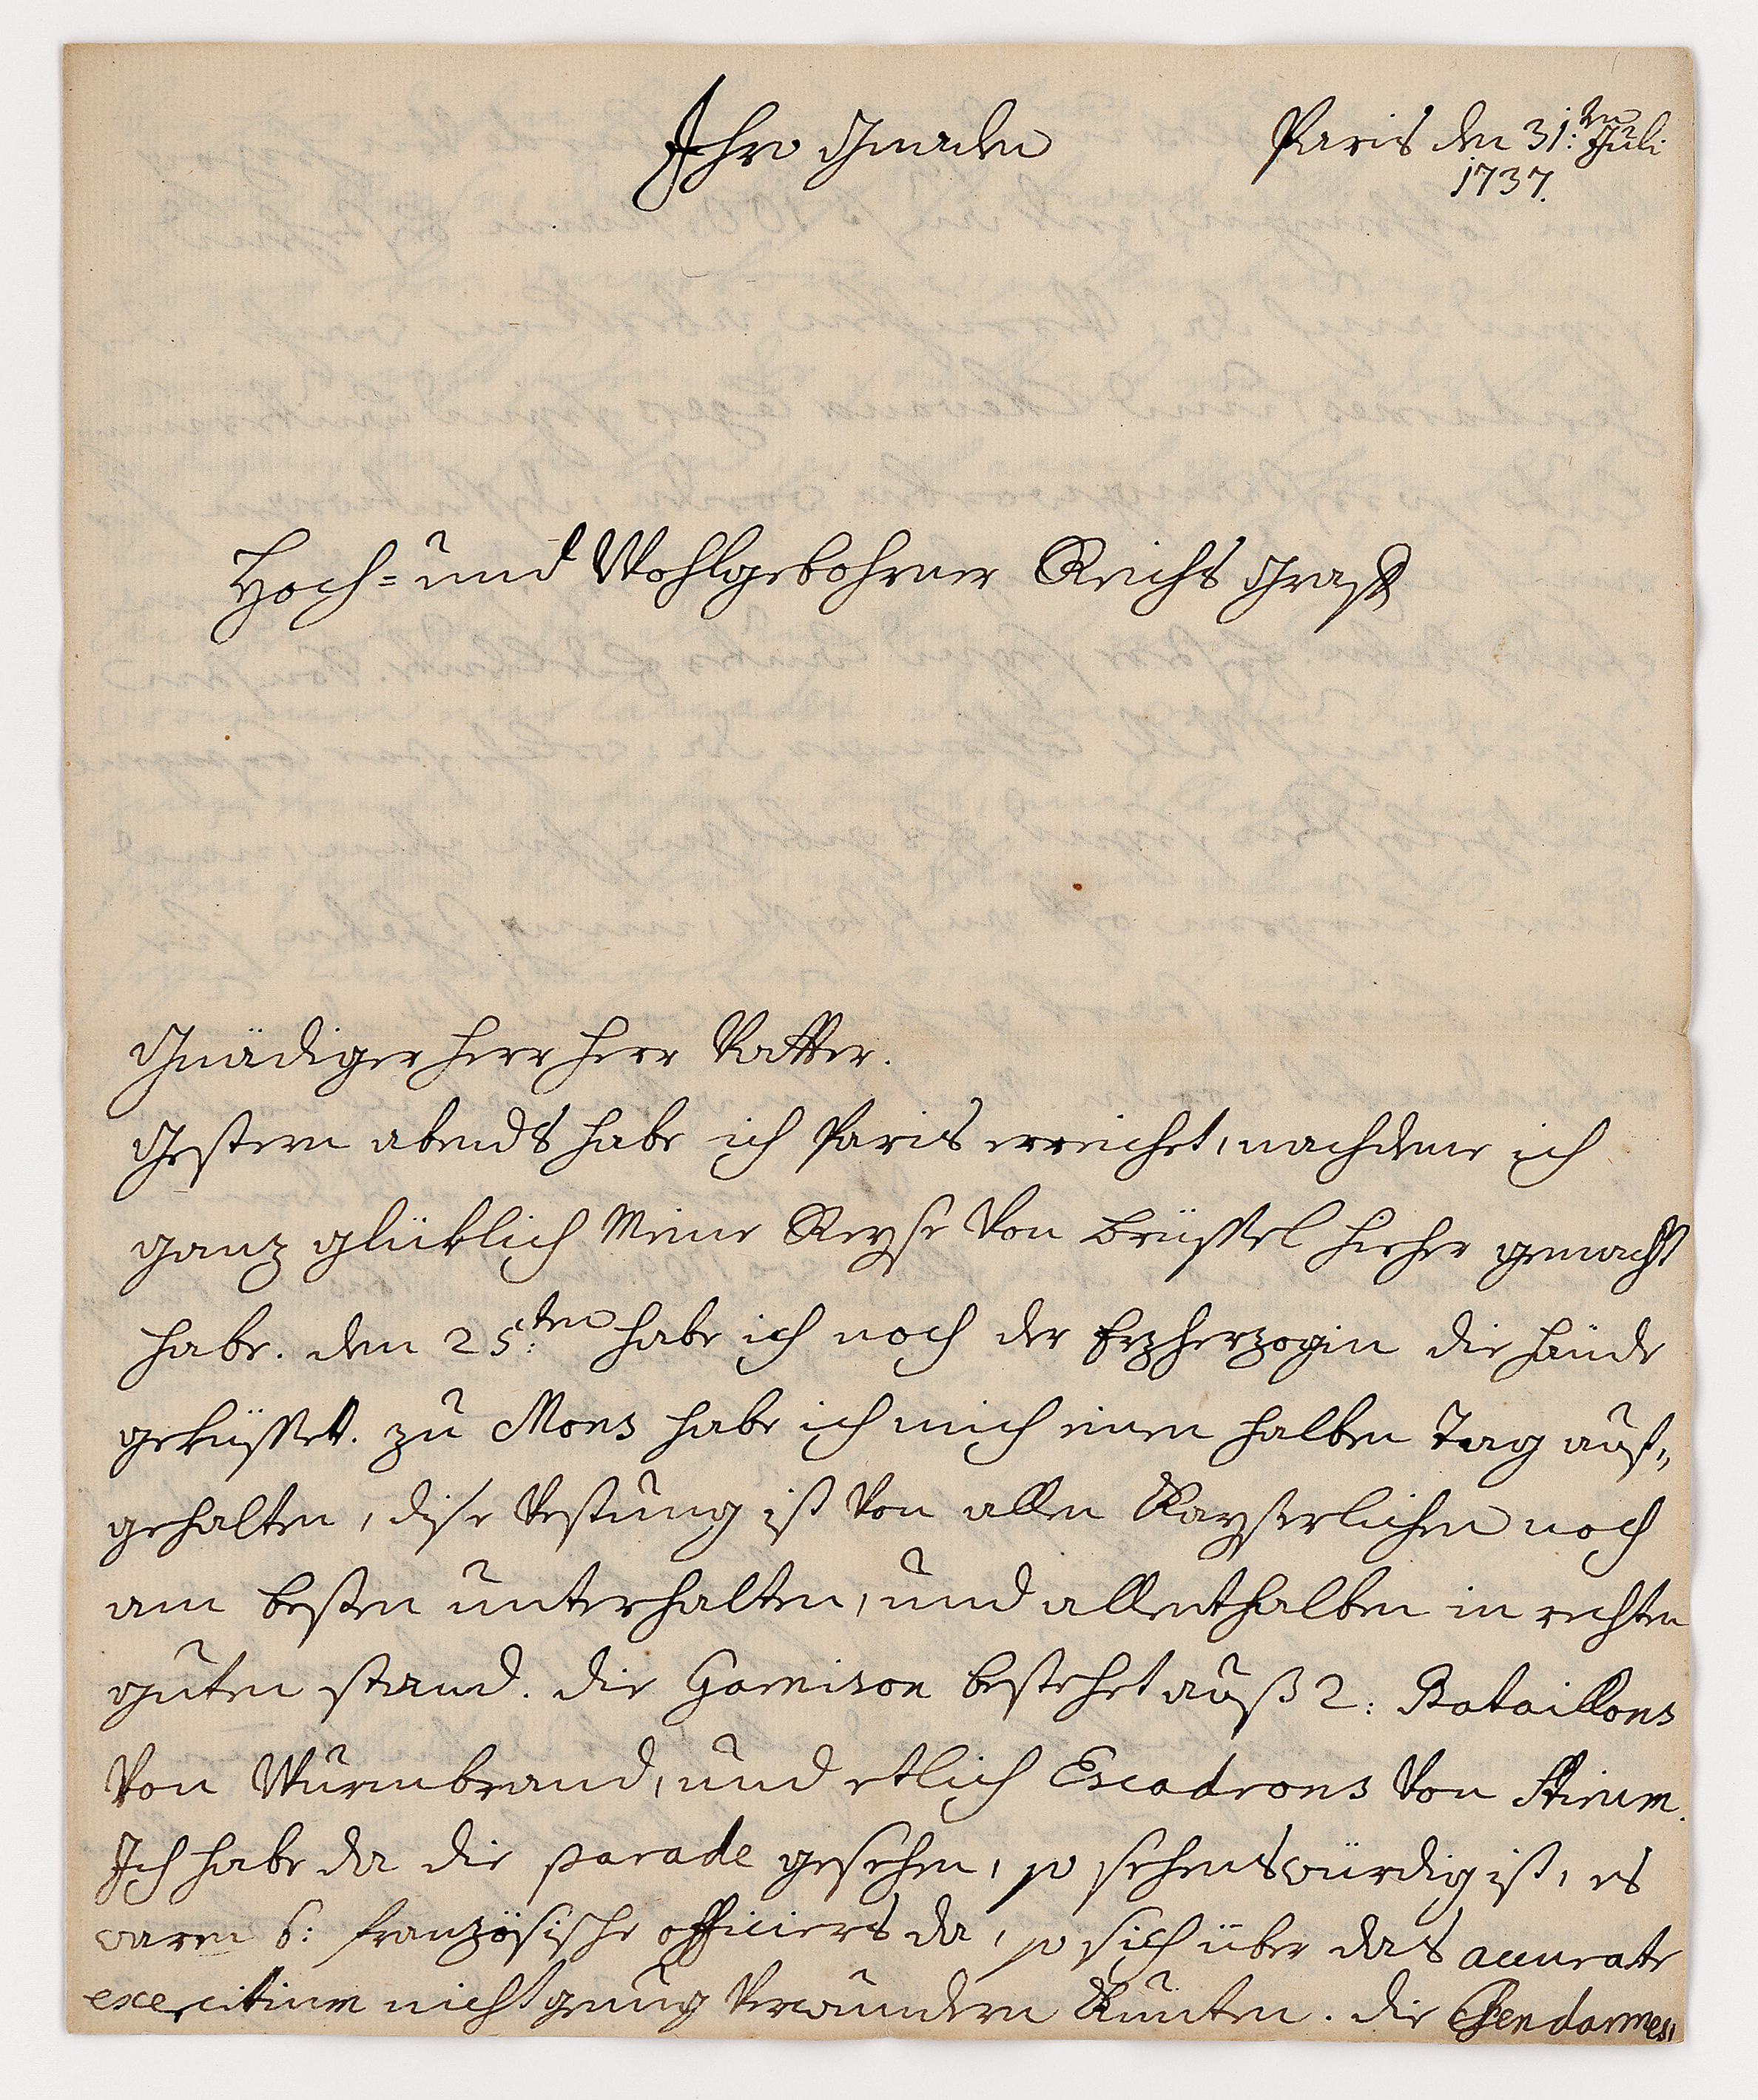 Ihro Gnaden
Paris den 31:ten Juli
1737.
Hoch= und Wohlgebohrner Reichs Graff
Gnädiger Herr Herr Vatter.
Gestern abends habe ich Paris erreichet, nachdeme ich
ganz glüklich Meine Reyse Von Brüssel hieher gemacht
habe. den 25:ten habe ich noch der Erzherzogin die Hände
geküsset. zu Mons habe ich mich einen halben Tag auf„
gehalten, dise Vestung ist Von allen Kayserlichen noch
am besten unterhalten, und allenthalben in rechten
guten stand. die Garnison bestehet auß 2: Bataillons
Von Wurmbrand, und etlich Escadrons Von Stirum.
Ich habe da die parade gesehen, so sehenswürdig ist, es
waren 6: französische officiers da, so sich über das accurate
exercitium nicht genug Verwundern Kunten. die Gendarmes,